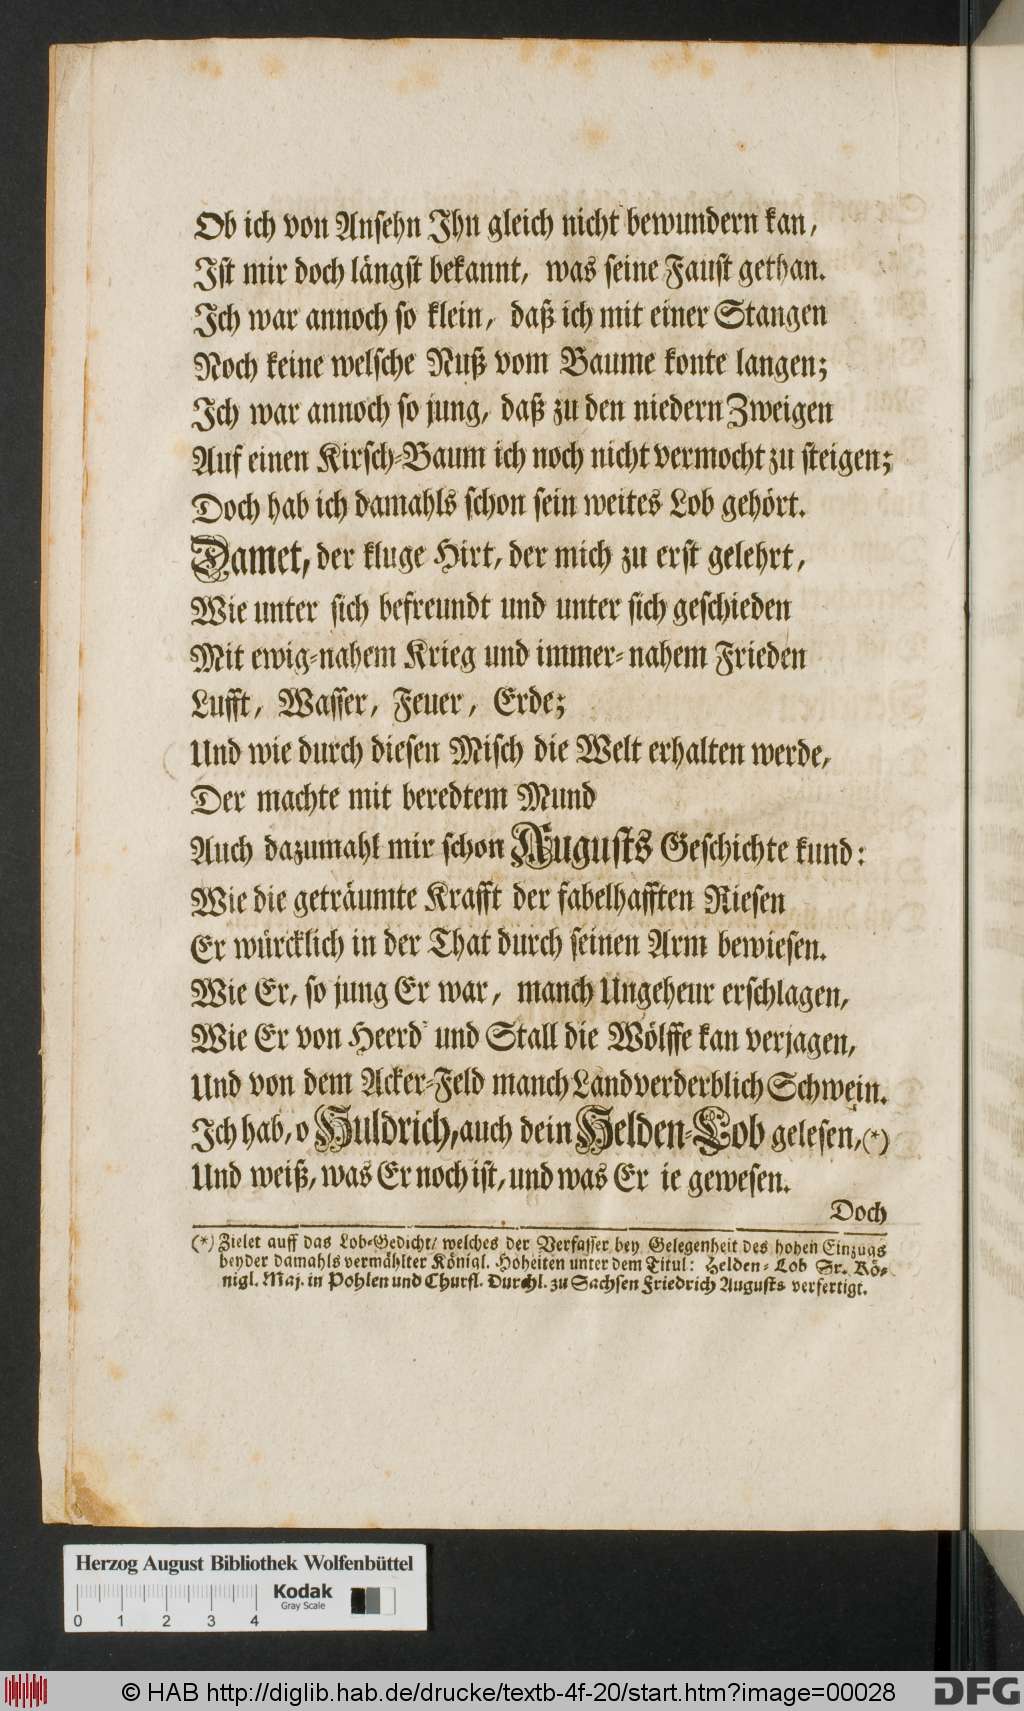 Ob ich von Ansehn Ihn gleich nicht bewundern kan,
Ist mir doch längst bekannt, was seine Faust gethan.
Ich war annoch so klein, daß ich mit einer Stangen
Noch keine welsche Nuß vom Baume konte langen;
Ich war annoch so jung, daß zu den niedern Zweigen
Auf einen Kirsch-Baum ich noch nicht vermocht zu steigen;
Doch hab ich damahls schon sein weites Lob gehört.
Damet, der kluge Hirt, der mich zu erst gelehrt,
Wie unter sich befreundt und unter sich geschieden
Mit ewig-nahem Krieg und immer-nahem Frieden
Lufft, Wasser, Feuer, Erde;
Und wie durch diesen Misch die Welt erhalten werde,
Der machte mit beredtem Mund
Auch dazumahl mir schon Augusts Geschichte kund:
Wie die geträumte Krafft der fabelhafften Riesen
Er würcklich in der That durch seinen Arm bewiesen.
Wie Er, so jung Er war, manch Ungeheur erschlagen,
Wie Er von Heerd und Stall die Wölffe kan verjagen,
Und von dem Acker-Feld manch Landverderblich Schwein.
Ich hab, o Huldrich, auch dein Helden-Lob gelesen,(*)
Und weiß, was Er noch ist, und was Er ie gewesen.
Doch
(*) Zielet auff das Lob-Gedicht/ welches der Verfasser bey Gelegenheit des hohen Einzugs
beyder damahls vermählter Königl. Hoheiten unter dem Titul: Helden-Lob Sr. Kö-
nigl. Maj. in Pohlen und Churfl. Durchl. zu Sachsen Friedrich Augusts verfertigt.
Herzog August Bibliothek Wolfenbüttel
Kodak
Gray Scale
0 1 2 3 4
© HAB http://diglib.hab.de/drucke/textb-4f-20/start.htm?image=00028
DFG